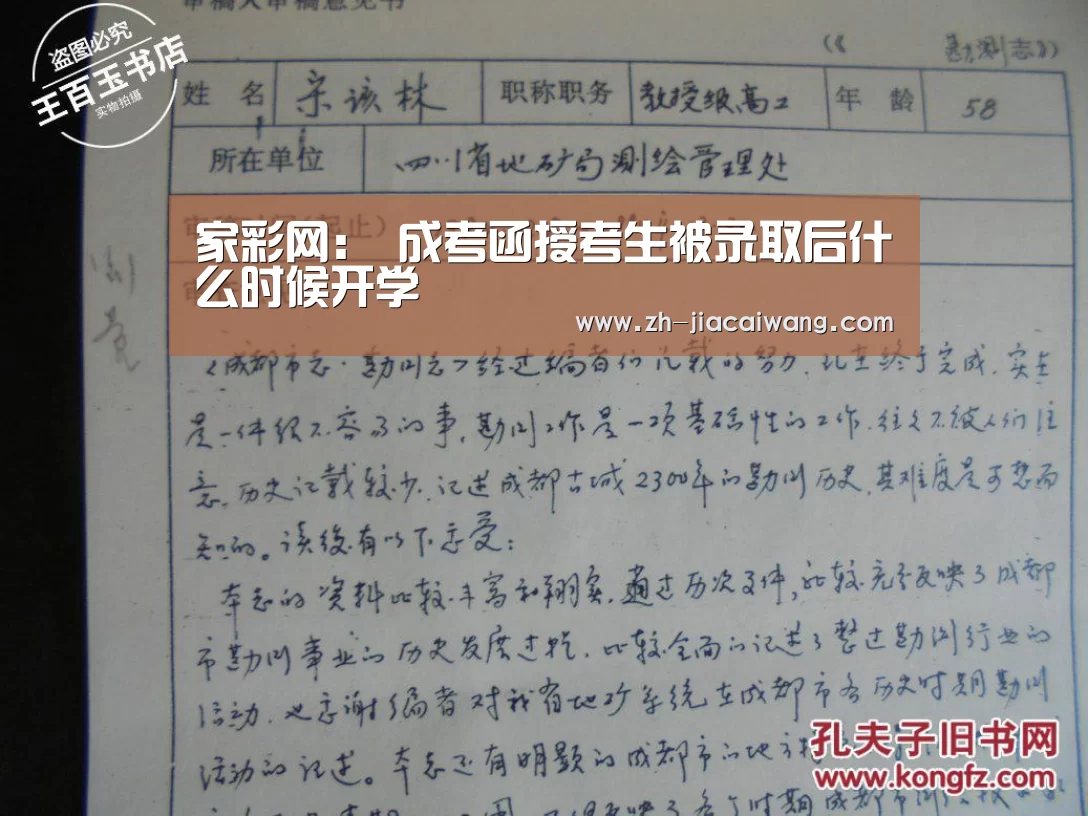 审稿人审稿意见书
盗图必究
王百玉书店
实物拍摄
《 勘测志》
姓 名 宋该林 职称职务 教授级高工 年 龄 58
所在单位 四川省地矿局测绘管理处
家彩网： 成考函授考生被录取后什
么时候开学
www.zh-jiacaiwang.com
《成都市志·勘测志》经过编者们几载的努力，现在终于完成，实在
是一件很不容易的事，勘测工作是一项基础性的工作，往往不被人们注
意，历史记载较少，记述成都古城2300年的勘测历史，其难度是可想而
知的。读后有以下感受：
本志的资料比较丰富和翔实，通过历次文件，比较充分反映了成都
市勘测事业的历史发展过程，比较全面的记述了整过勘测行业的
活动，也感谢编者对我省地矿系统在成都市各历史时期勘测
活动的记述。本志还有明显的成都市的地方
孔夫子旧书网
www.kongfz.com